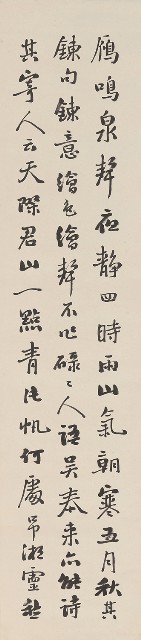 鴈鳴泉聲夜靜四時雨山氣朝寒五月秋其
鍊句鍊意繪色繪聲不作碌〻人語吳奉來亦能詩
其寄人云天際君山一點青片帆何處吊湘靈愁